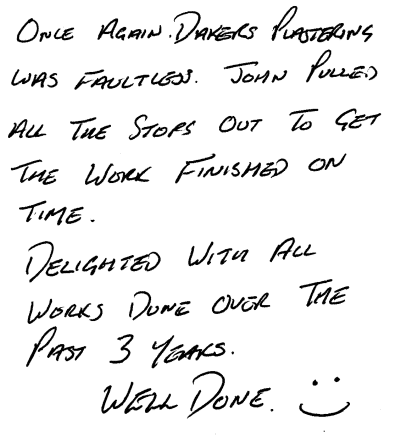 ONCE AGAIN. DAKERS PLASTERING
WAS FAULTLESS. JOHN PULLED
ALL THE STOPS OUT TO GET
THE WORK FINISHED ON
TIME.
DELIGHTED WITH ALL
WORKS DONE OVER THE
PAST 3 YEARS.
WELL DONE.